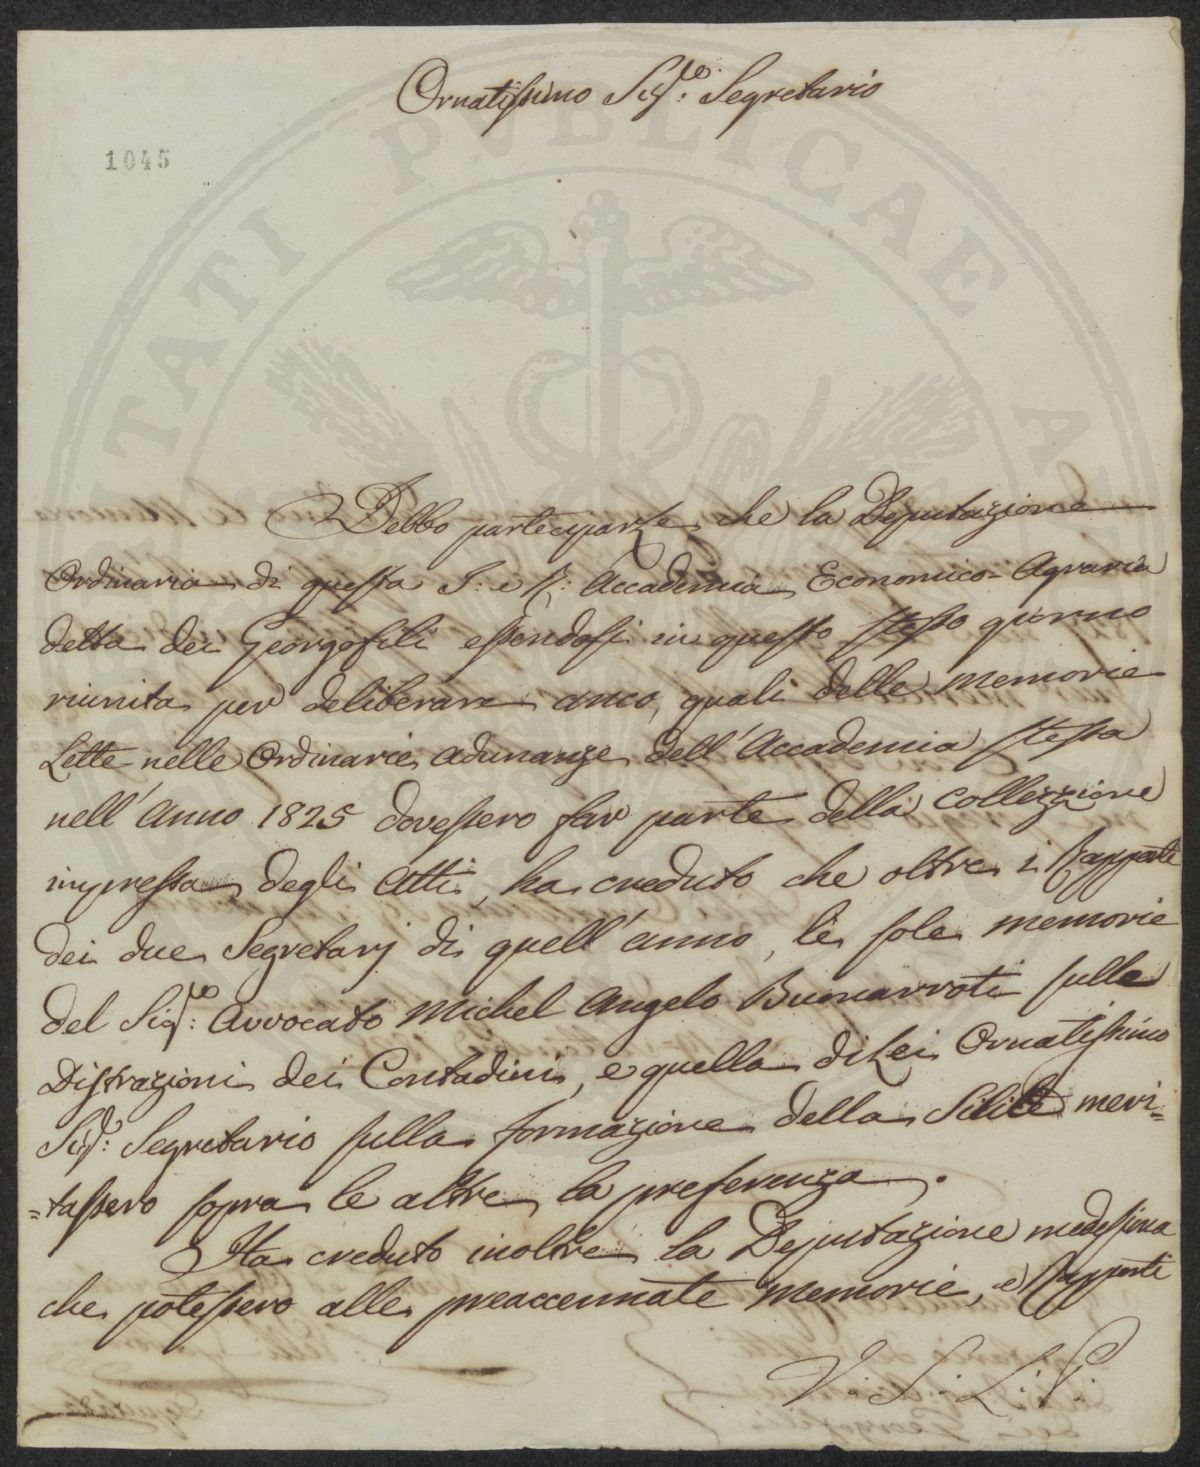 Ornatissimo Sig.re Segretario
1045
PVBLICAE
Debbo partecipare che la Deputazione
Ordinaria di questa I: e R: Accademia Economico-Agraria
detta dei Georgofili essendosi in questo stesso giorno
riunita per deliberare anco, quali delle memorie
Lette nelle Ordinarie adunanze dell'Accademia stessa
nell'Anno 1825 dovessero far parte della Collezzione
impressa degli Atti, ha creduto che oltre i Rapporti
dei due Segretarj di quell'anno, le sole memorie
del Sig.re Avvocato Michel Angelo Buonarroti sulle
Distrazioni dei Contadini, e quella di Lei Ornatissimo
Sig.: Segretario sulla formazione della Silice meri=
=tassero sopra le altre la preferenza.
Ha creduto inoltre la Deputazione medesima
che potessero alle preaccennate memorie, e Rapporti
V: S: L: P: